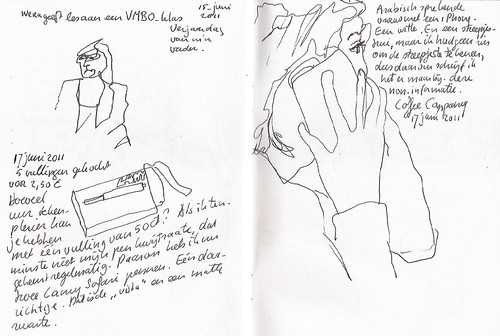 Wera geeft les aan een VMBO-klas
15-juni
2011
Verjaardag
van mijn
vader.
17 juni 2011
5 vullingen gekocht
voor 2,50 €
Hoeveel
uur teken-
plezier kan
je hebben
met één vulling van 50ct? Als ik ten-
minste niet mijn pen kwijtraak, dat
gebeurt regelmatig. Daarom heb ik nu
twee Lamy Safari pennen. Eén door-
zichtige. Dat is de „vista” en een matte
zwarte.
Arabisch sprekende
vrouw met een iPhone.
Een witte. En een streepjes-
trui, maar ik had geen zin
om de streepjes te tekenen,
dus daarom schrijf ik
het er maar bij. deze
non-informatie.
Coffee Company
17 juni 2011